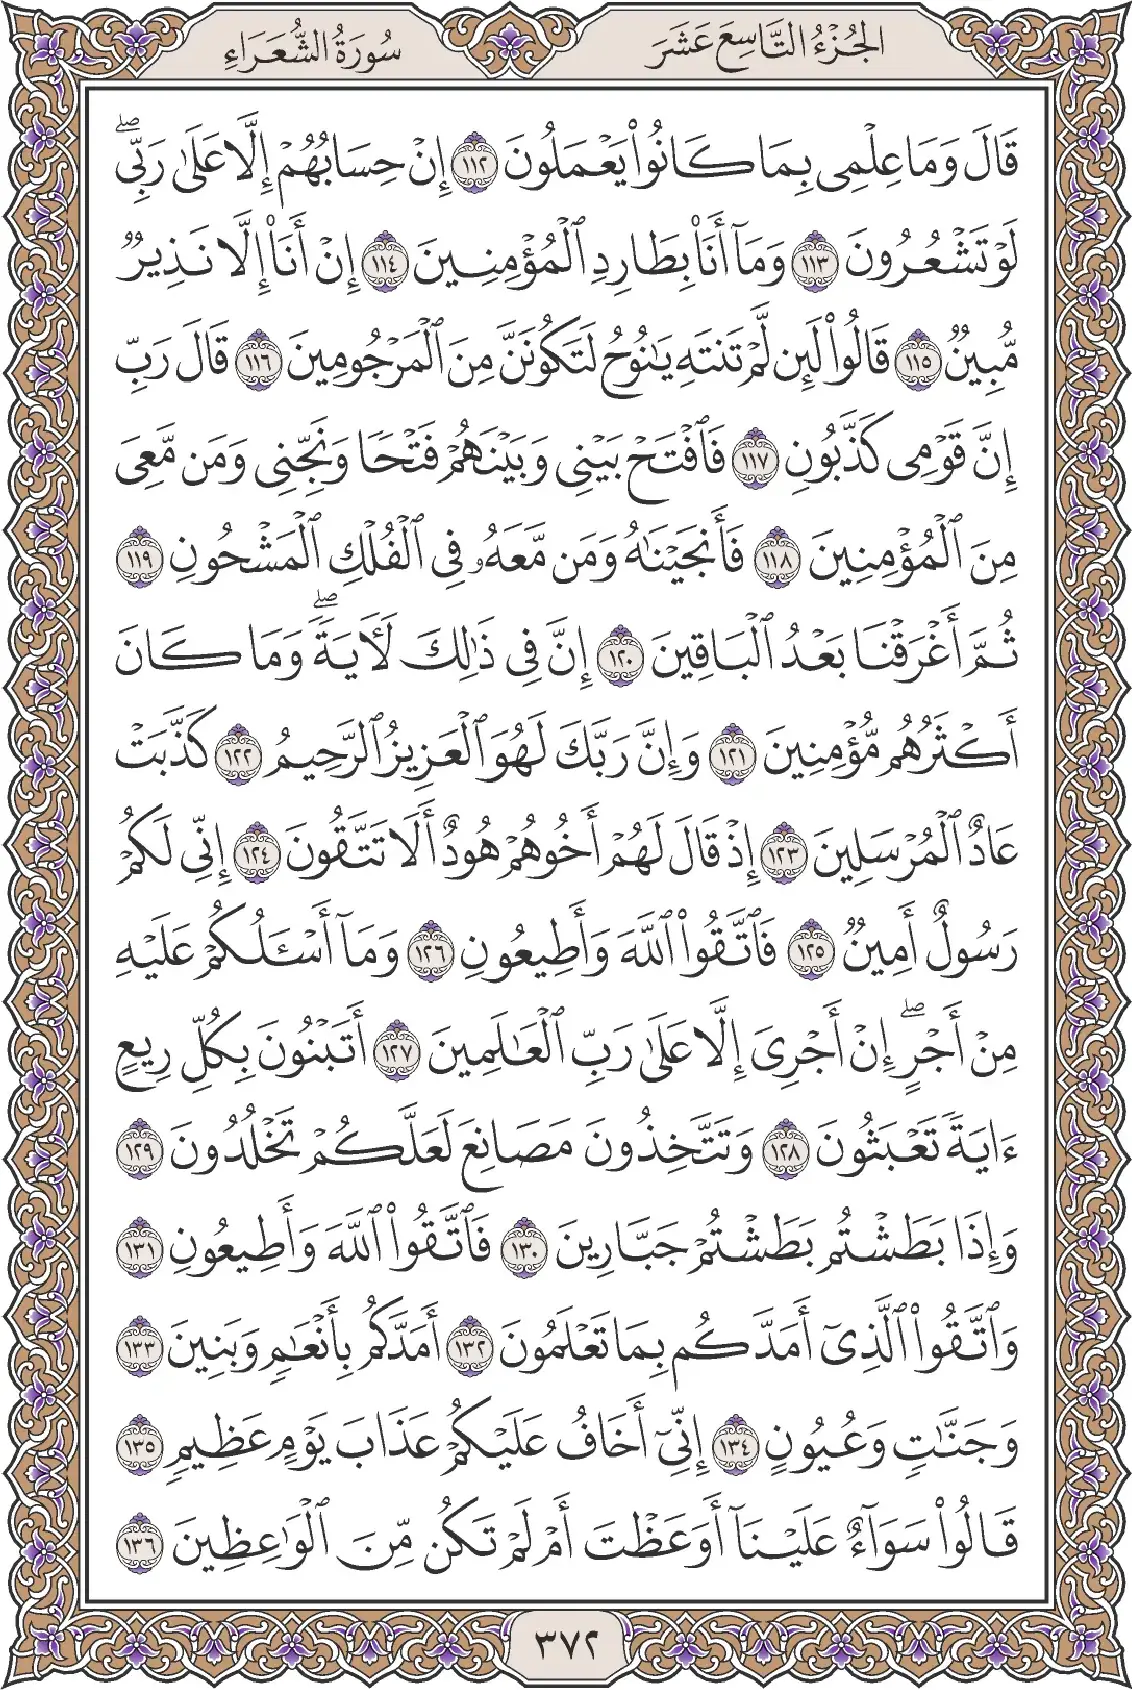 الجُزْءُ التَّاسِعَ عَشَرَ
سُورَةُ الشُّعَرَاءِ
قَالَ وَمَا عِلْمِى بِمَا كَانُوا۟ يَعْمَلُونَ ١١٢ إِنْ حِسَابُهُمْ إِلَّا عَلَىٰ رَبِّىۖ
لَوْ تَشْعُرُونَ ١١٣ وَمَآ أَنَا۠ بِطَارِدِ ٱلْمُؤْمِنِينَ ١١٤ إِنْ أَنَا۠ إِلَّا نَذِيرٌ
مُّبِينٌ ١١٥ قَالُوا۟ لَئِن لَّمْ تَنتَهِ يَـٰنُوحُ لَتَكُونَنَّ مِنَ ٱلْمَرْجُومِينَ ١١٦ قَالَ رَبِّ
إِنَّ قَوْمِى كَذَّبُونِ ١١٧ فَٱفْتَحْ بَيْنِى وَبَيْنَهُمْ فَتْحًا وَنَجِّنِى وَمَن مَّعِىَ
مِنَ ٱلْمُؤْمِنِينَ ١١٨ فَأَنجَيْنَـٰهُ وَمَن مَّعَهُۥ فِى ٱلْفُلْكِ ٱلْمَشْحُونِ ١١٩
ثُمَّ أَغْرَقْنَا بَعْدُ ٱلْبَاقِينَ ١٢٠ إِنَّ فِى ذَٰلِكَ لَـَٔايَةًۖ وَمَا كَانَ
أَكْثَرُهُم مُّؤْمِنِينَ ١٢١ وَإِنَّ رَبَّكَ لَهُوَ ٱلْعَزِيزُ ٱلرَّحِيمُ ١٢٢ كَذَّبَتْ
عَادٌ ٱلْمُرْسَلِينَ ١٢٣ إِذْ قَالَ لَهُمْ أَخُوهُمْ هُودٌ أَلَا تَتَّقُونَ ١٢٤ إِنِّى لَكُمْ
رَسُولٌ أَمِينٌ ١٢٥ فَٱتَّقُوا۟ ٱللَّهَ وَأَطِيعُونِ ١٢٦ وَمَآ أَسْـَٔلُكُمْ عَلَيْهِ
مِنْ أَجْرٍۖ إِنْ أَجْرِىَ إِلَّا عَلَىٰ رَبِّ ٱلْعَـٰلَمِينَ ١٢٧ أَتَبْنُونَ بِكُلِّ رِيعٍ
ءَايَةً تَعْبَثُونَ ١٢٨ وَتَتَّخِذُونَ مَصَانِعَ لَعَلَّكُمْ تَخْلُدُونَ ١٢٩
وَإِذَا بَطَشْتُم بَطَشْتُمْ جَبَّارِينَ ١٣٠ فَٱتَّقُوا۟ ٱللَّهَ وَأَطِيعُونِ ١٣١
وَٱتَّقُوا۟ ٱلَّذِىٓ أَمَدَّكُم بِمَا تَعْلَمُونَ ١٣٢ أَمَدَّكُم بِأَنْعَـٰمٍ وَبَنِينَ ١٣٣
وَجَنَّـٰتٍ وَعُيُونٍ ١٣٤ إِنِّىٓ أَخَافُ عَلَيْكُمْ عَذَابَ يَوْمٍ عَظِيمٍ ١٣٥
قَالُوا۟ سَوَآءٌ عَلَيْنَآ أَوَعَظْتَ أَمْ لَمْ تَكُن مِّنَ ٱلْوَٰعِظِينَ ١٣٦
٣٧٢